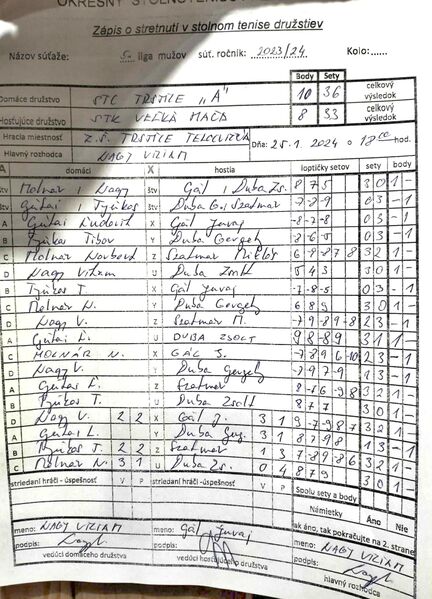 OKRESNÝ STOLNOTENISOV
Zápis o stretnutí v stolnom tenise družstiev
Názov súťaže: 5. liga mužov súť. ročník: 2023/24 Kolo:......
Body Sety
Domáce družstvo STC TRSTICE "A" 10 36 celkový výsledok
Hosťujúce družstvo STK VEĽKÁ MAČA 8 33 celkový výsledok
Hracia miestnosť Z.Š. TRSTICE Dňa: 25.1.2024 o 18 00 hod.
Hlavný rozhodca NAGY VIZIAM
A domáci X hostia loptičky setov sety body
štv Molnár, Nagy štv Gál, Duba Zs. 8 7 5 3 0 1 -
štv Gútai, Tyúkos štv Duba G., Szatmár -7-8-9 0 3 - 1
A Gútai Ľudovít X Gál Juraj -8-2-8 0 3 - 1
B Tyúkos Tibor Y Duba Gergely -8-6-5 0 3 - 1
C Molnár Norbert Z Szatmár Miklós 3 2 1 -
D Nagy Viliam U Duba Zsolt 5 4 3 3 0 1 -
B Tyúkos T. X Gál Juraj -7-8-5 0 3 - 1
C Molnár N. Y Duba Gergely 6 8 9 3 0 1 -
D Nagy V. Z Szatmár M. -7 9-8 9-8 2 3 - 1
A Gútai Ľ. U DUBA ZSOLT 9 8-8 9 3 1 1 -
C MOLNÁR N. X GÁL J. 2 3 - 1
D Nagy V. Y Duba Gergely 1 3 - 1
A Gútai Ľ. Z Szatmár 3 2 1 -
B Tyúkos T. U Duba Zsolt 8 7 7 3 0 1 -
D Nagy V. 2 2 X Gál J. 3 1 9-7-9 8 7
A Gútai L. Y Duba Gerg. 3 1
B Tyúkos T. 2 2 Z Szatmár 1 3
C Molnár N. 3 1 U Duba Zs. 0 4 8 7 9 3 0 1 -
striedaní hráči - úspešnosť V P striedaní hráči - úspešnosť V P Spolu sety a body
Námietky Áno Nie
ak áno, tak pokračujte na 2. strane
meno: NAGY VIZIAM meno: Gál Juraj meno: NAGY VIZIAM
podpis: podpis: podpis:
vedúci domáceho družstva vedúci hosťujúceho družstva hlavný rozhodca